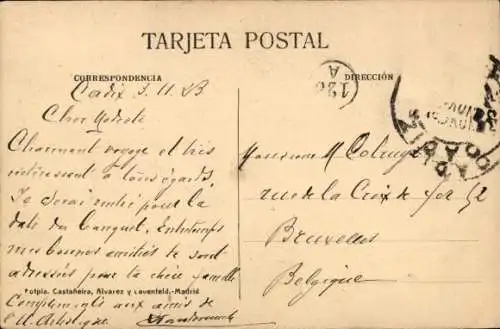 TARJETA POSTAL
CORRESPONDENCIA
DIRECCIÓN
126
A
Cadix 3.11.23
Cher
Charmant voyage et très
intéressant à tous égards.
Je serai rentré pour la
date du banquet. Entretemps
mes bonnes amitiés te sont
adressées pour la chère famille
Fotpia. Castañeira, Alvarez y Levenfeld.-Madrid
Compliments aux amis de
Monsieur M
rue de la Croix de fer 52
Bruxelles
Belgique